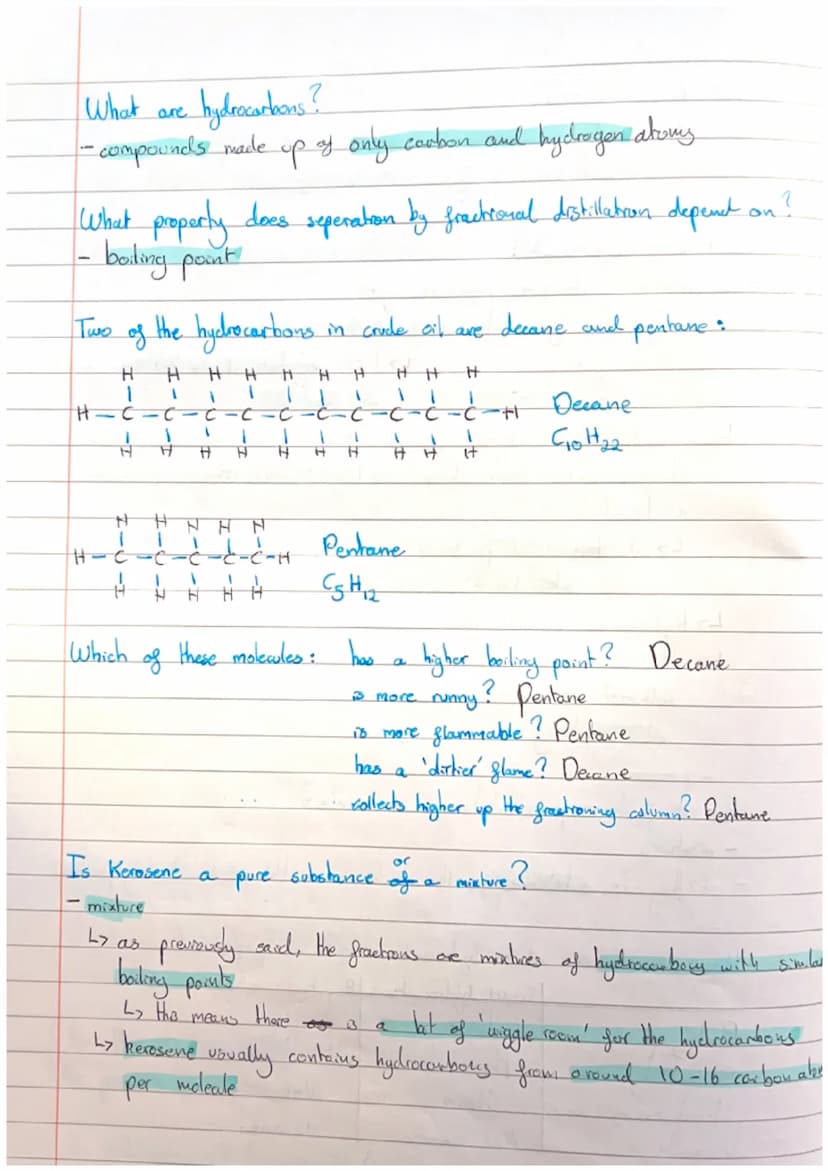 What are hydrocarbons?
- compounds made up of only carbon and hydrogen atoms
What property does seperation by fractional distillation depend on?
- boiling point
Two of the hydrocarbons in crude oil are decane and pentane:
H H H H H H H H H H
H-C-C-C-C-C-C-C-C-C-C-H Decane
H H H H H H H H H H C10H22
H H H H H
H-C-C-C-C-C-H Pentane
H H H H H C5H12
Which of these molecules: has a higher boiling point? Decane
is more runny? Pentane
is more flammable? Pentane
has a 'dirtier' flame? Decane
collects higher up the fractioning column? Pentane
Is Kerosene a pure substance or a mixture?
- mixture
↳ as previously said, the fractions are mixtures of hydrocarbons with simila
boiling points
↳ this means there is a bit of 'wiggle room' for the hydrocarbons
↳ kerosene usually contains hydrocarbons from around 10-16 carbon
per molecule